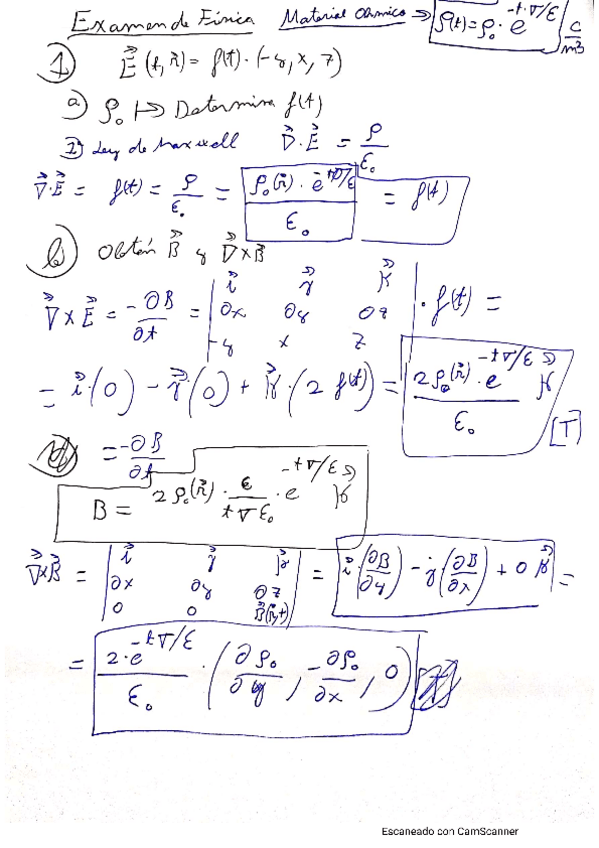 Examen de Física Material Ohmico => ρ(t)=ρ₀·e^(-t·∇/ε) [C/m³]
1) E⃗ (t, r⃗) = f(t)·(-y, x, z)
a) ρ₀ ↦ Determina f(t)
1ª Ley de Maxwell ∇⃗·E⃗ = ρ/ε₀
∇⃗·E⃗ = f(t) = ρ/ε₀ = ρ₀(r⃗)·e^(-t∇/ε)/ε₀ = f(t)
b) Obtén B⃗ y ∇⃗×B⃗
∇⃗×E⃗ = -∂B/∂t = | i⃗ j⃗ k⃗ ; ∂x ∂y ∂z ; -y x z | · f(t) =
= i⃗·(0) - j⃗·(0) + k⃗·(2 f(t)) = 2ρ₀(r⃗)·e^(-t∇/ε)/ε₀ k⃗ [T]
= -∂B/∂t
B = 2ρ₀(r⃗)·ε/(t∇ε₀)·e^(-t∇/ε) k⃗
∇⃗×B⃗ = | i⃗ j⃗ k⃗ ; ∂x ∂y ∂z ; 0 0 B⃗(r⃗,t) | = i⃗·(∂B/∂y) - j⃗(∂B/∂x) + 0 k⃗ =
= 2·e^(-t∇/ε)/ε₀ · (∂ρ₀/∂y, -∂ρ₀/∂x, 0)
Escaneado con CamScanner